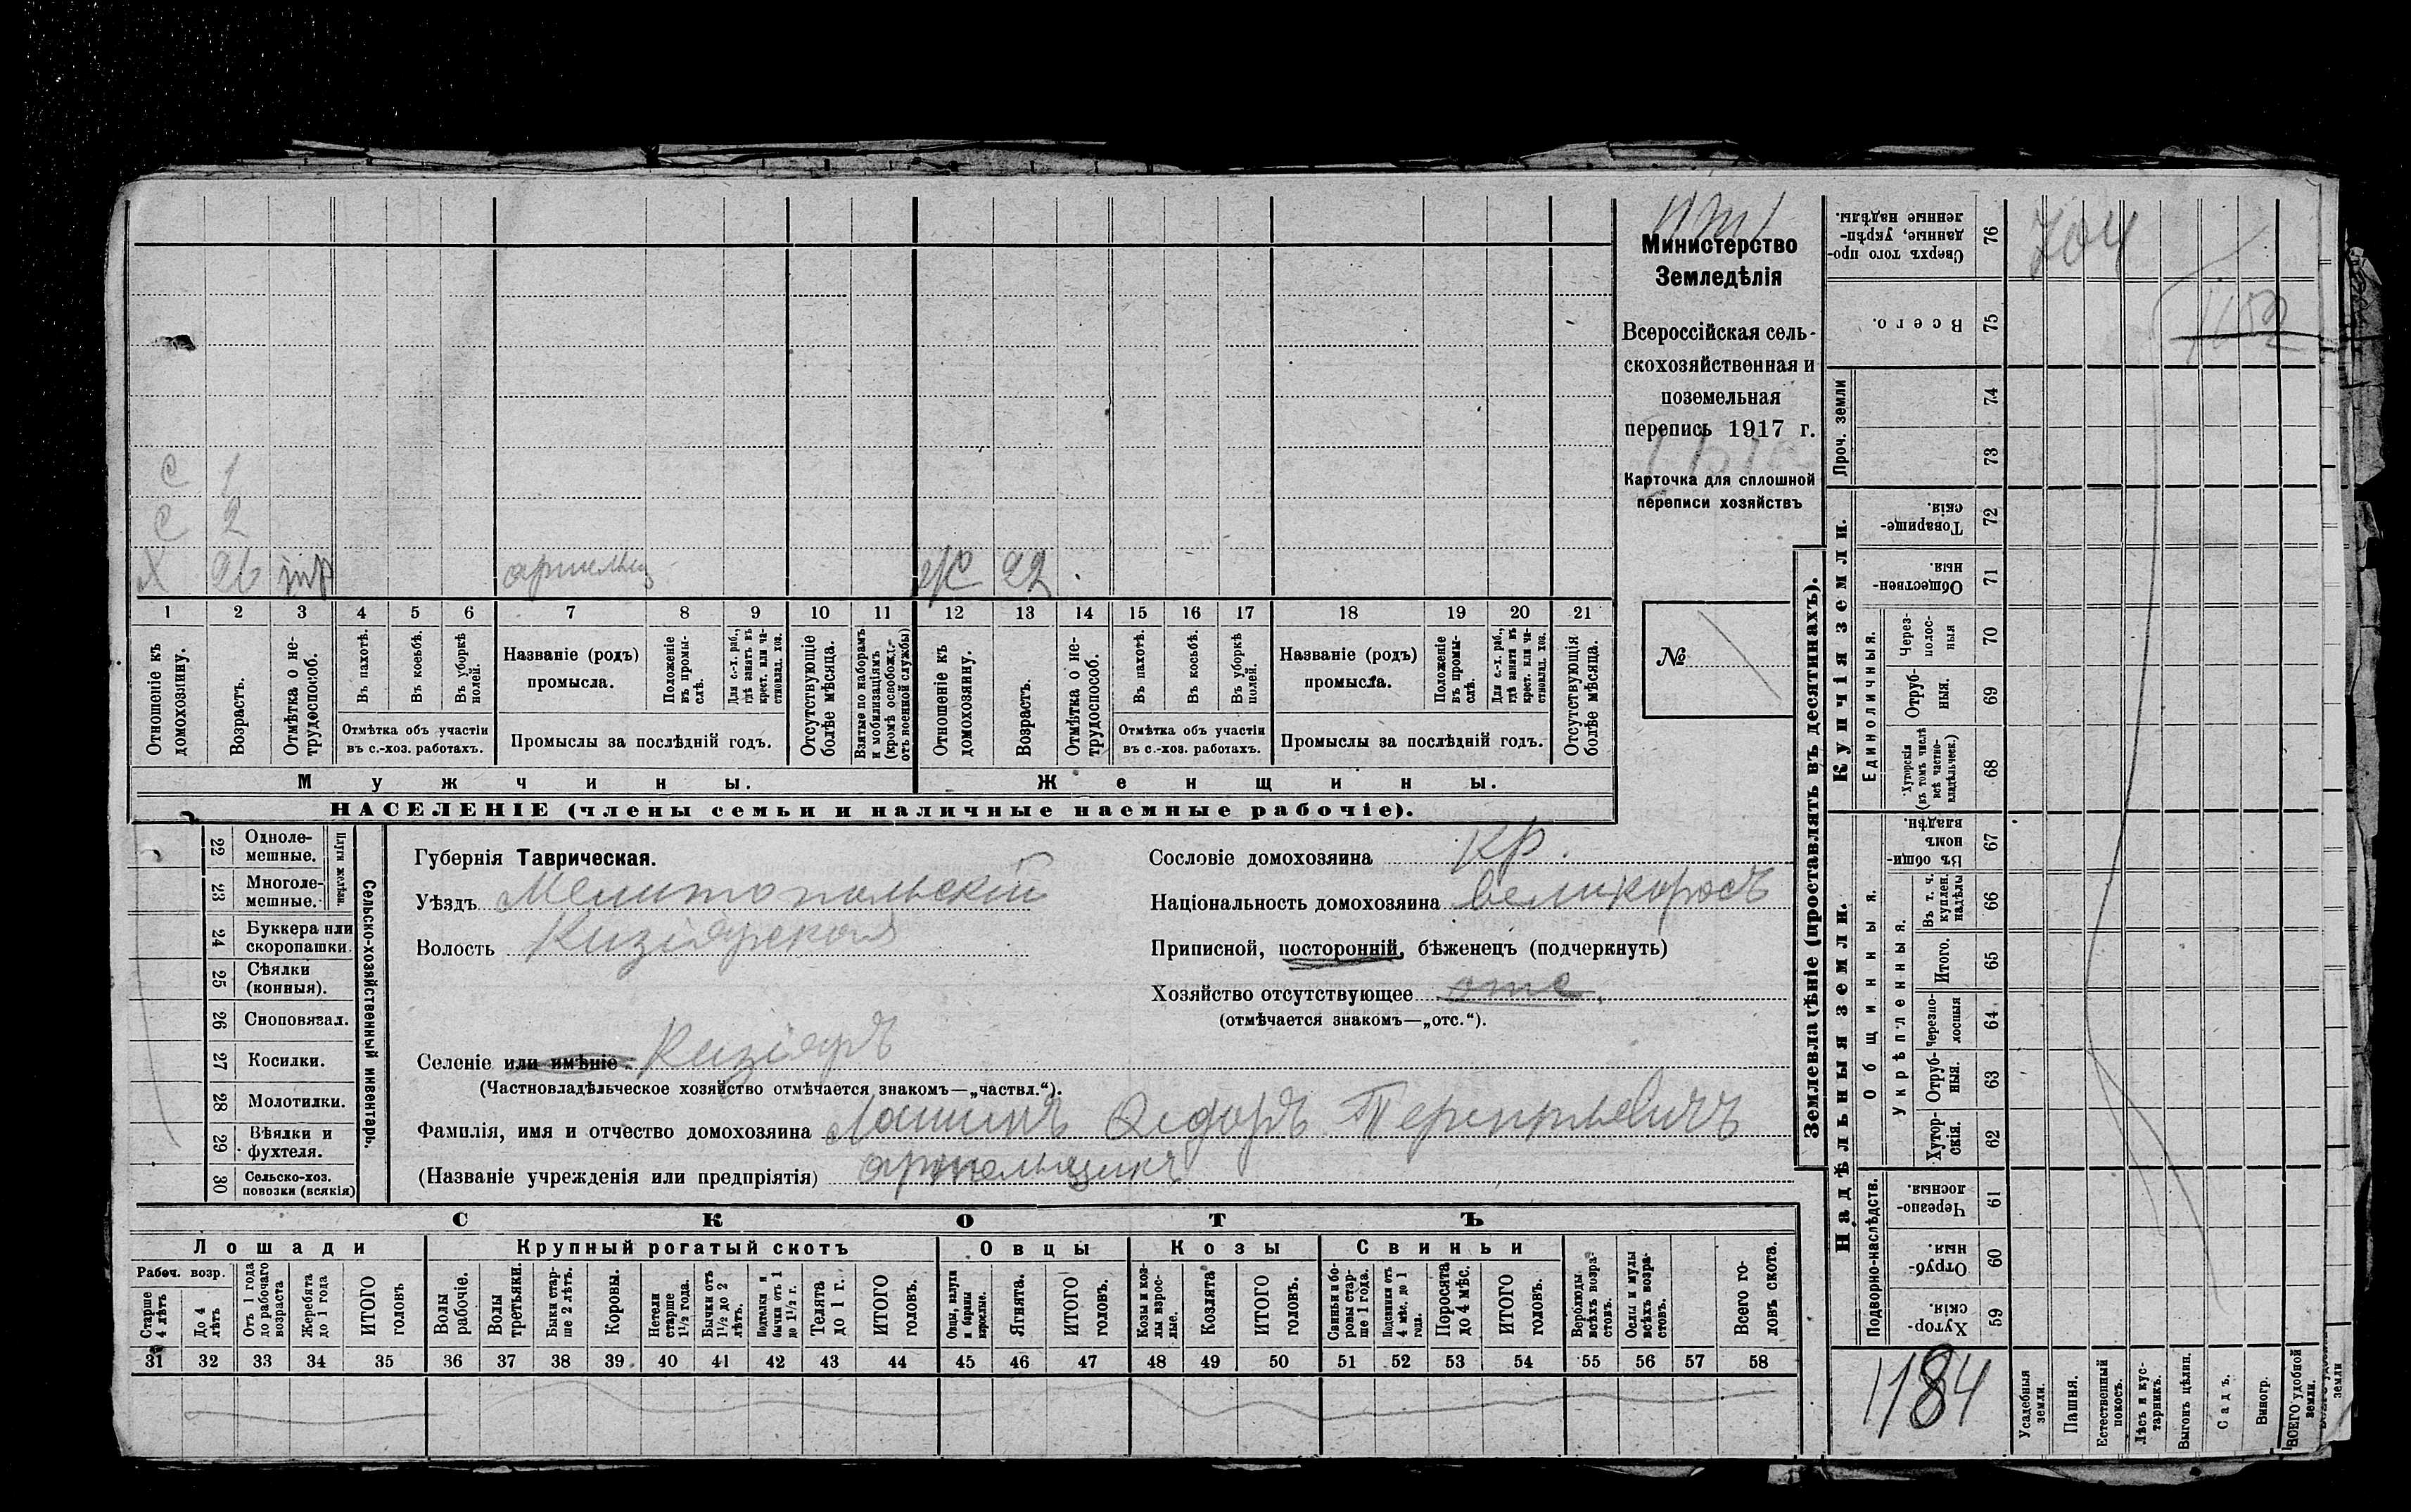 Министерство
Земледѣлія
Всероссійская сель-
скохозяйственная и
поземельная
перепись 1917 г.
Карточка для сплошной
переписи хозяйствъ
№
С 1
С 2
Х 26
Ж 22
1 2 3 4 5 6 7 8 9 10 11 12 13 14 15 16 17 18 19 20 21
Отношеніе къ домохозяину.
Возрастъ.
Отмѣтка о не-трудоспособ.
Въ пахотѣ.
Въ косьбѣ.
Въ уборкѣ полей.
Отмѣтка объ участіи
въ с.-хоз. работахъ.
Названіе (родъ)
промысла.
Положеніе въ промы-слѣ.
Для с.-х. раб., гдѣ занятъ въ крест. или ча-стновлад. хоз.
Промыслы за послѣдній годъ.
Отсутствующіе болѣе мѣсяца.
Взятые по наборамъ и мобилизаціямъ (кромѣ освобожд. отъ военной службы)
Отношеніе къ домохозяину.
Возрастъ.
Отмѣтка о не-трудоспособ.
Въ пахотѣ.
Въ косьбѣ.
Въ уборкѣ полей.
Отмѣтка объ участіи
въ с.-хоз. работахъ.
Названіе (родъ)
промысла.
Положеніе въ промы-слѣ.
Для с.-х. раб., гдѣ занята въ крест. или ча-стновлад. хоз.
Промыслы за послѣдній годъ.
Отсутствующія болѣе мѣсяца.
Мужчины.
Женщины.
НАСЕЛЕНІЕ (члены семьи и наличные наемные рабочіе).
Сельско-хозяйственный инвентарь.
Плуги желѣзн.
22 Одноле-мешные.
23 Многоле-мешные.
24 Буккера или скоропашки.
25 Сѣялки (конныя).
26 Сноповязал.
27 Косилки.
28 Молотилки.
29 Вѣялки и фухтеля.
30 Сельско-хоз. повозки (всякія)
Губернія Таврическая.
Уѣздъ Мелитопольскій
Волость Кизіярская
Селеніе или имѣніе Кизіяръ
(Частновладѣльческое хозяйство отмѣчается знакомъ—„частвл.“).
Сословіе домохозяина кр.
Національность домохозяина великоросъ
Приписной, посторонній, бѣженецъ (подчеркнуть)
Хозяйство отсутствующее отс.
(отмѣчается знакомъ—„отс.“).
Фамилія, имя и отчество домохозяина Лашинъ Ѳедоръ Терентьевичъ
(Названіе учрежденія или предпріятія) артельщикъ
СКОТЪ
Лошади
Крупный рогатый скотъ
Овцы
Козы
Свиньи
Рабоч. возр.
Старше 4 лѣтъ
До 4 лѣтъ
Отъ 1 года до рабочаго возраста
Жеребята до 1 года
ИТОГО головъ
Волы рабочіе.
Волы третьяки.
Быки стар-ше 2 лѣтъ.
Коровы.
Нетели старше 1½ года.
Бычки отъ 1½ до 2 лѣтъ.
Подтелки и бычки отъ 1 до 1½ г.
Телята до 1 г.
ИТОГО головъ.
Овцы, валухи и бараны взрослые.
Ягнята.
ИТОГО головъ.
Козы и коз-лы взрос-лые.
Козлята
ИТОГО головъ.
Свиньи и бо-ровы стар-ше 1 года.
Подсвинки отъ 4 мѣс. до 1 года.
Поросята до 4 мѣс.
ИТОГО головъ.
Верблюды всѣхъ возра-стовъ.
Ослы и мулы всѣхъ возра-стовъ.
Всего го-ловъ скота.
31 32 33 34 35 36 37 38 39 40 41 42 43 44 45 46 47 48 49 50 51 52 53 54 55 56 57 58
Землевладѣніе (проставлять въ десятинахъ).
Надѣльныя земли.
Купчія земли.
Проч. земли
Подворно-наслѣдств.
Общинныя.
Укрѣпленныя.
Единоличныя.
Сверхъ того про-данные, укрѣп-ленные надѣлы. 76
Всего. 75
74
73
Товарище-скія. 72
Обществен-ныя. 71
Через-полос-ныя 70
Отруб-ныя. 69
Хуторскія (въ томъ числѣ всѣ частно-владѣльческ.) 68
Въ общи-номъ владѣн. 67
Въ т. ч. куплен. надѣлы 66
Итого. 65
Черезпо-лосныя 64
Отруб-ныя. 63
Хутор-скія. 62
Черезпо-лосныя. 61
Отруб-ныя. 60
Хутор-скія. 59
Усадебныя земли.
Пашня.
Естественный покосъ.
Лѣсъ и кус-тарникъ.
Выгонъ цѣлин.
Садъ.
Виногр.
ВСЕГО удобной земли.
704
1184